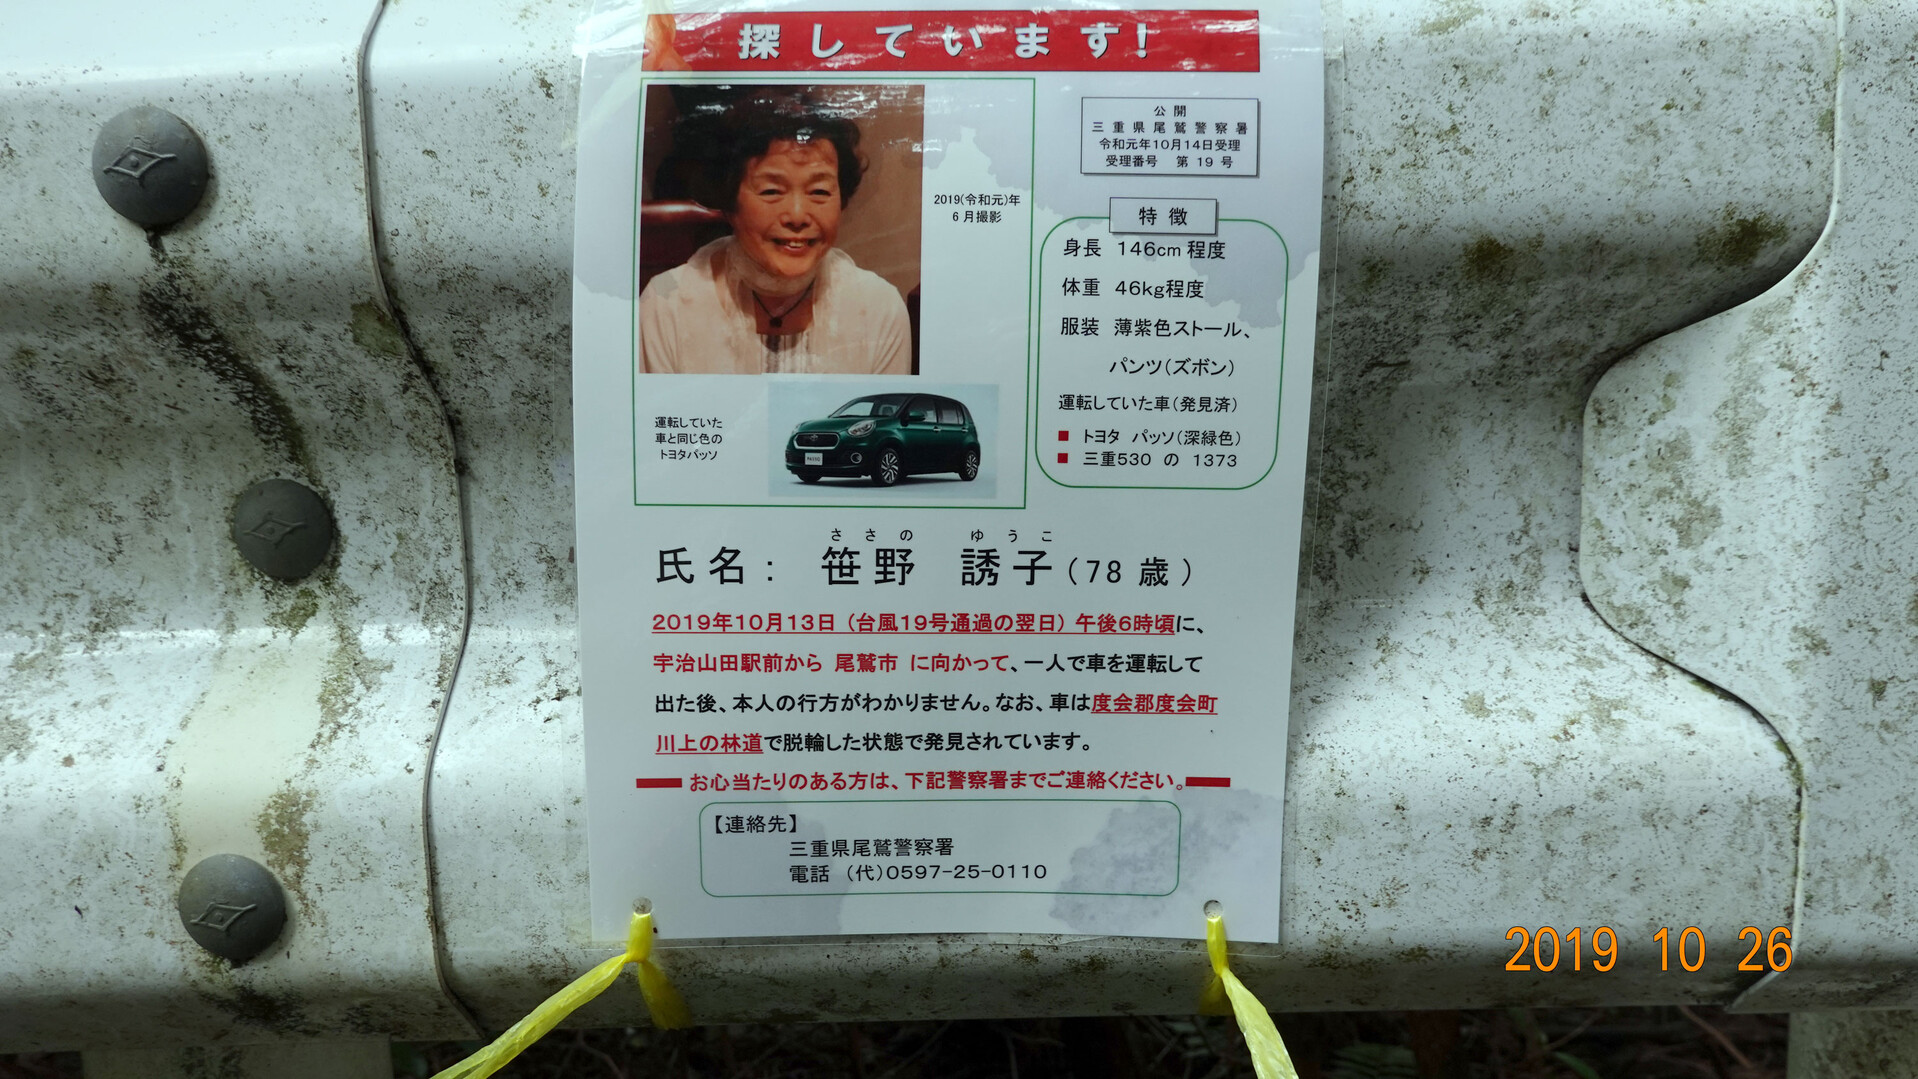 探しています!
公開
三重県尾鷲警察署
令和元年10月14日受理
受理番号 第 19 号
2019(令和元)年
6月撮影
特徴
身長 146cm程度
体重 46kg程度
服装 薄紫色ストール、
パンツ(ズボン)
運転していた車(発見済)
■ トヨタ パッソ(深緑色)
■ 三重530 の 1373
運転していた
車と同じ色の
トヨタパッソ
ささの ゆうこ
氏名: 笹野 誘子(78歳)
2019年10月13日(台風19号通過の翌日)午後6時頃に、
宇治山田駅前から 尾鷲市 に向かって、一人で車を運転して
出た後、本人の行方がわかりません。なお、車は度会郡度会町
川上の林道で脱輪した状態で発見されています。
お心当たりのある方は、下記警察署までご連絡ください。
【連絡先】
三重県尾鷲警察署
電話 (代)0597-25-0110
2019 10 26